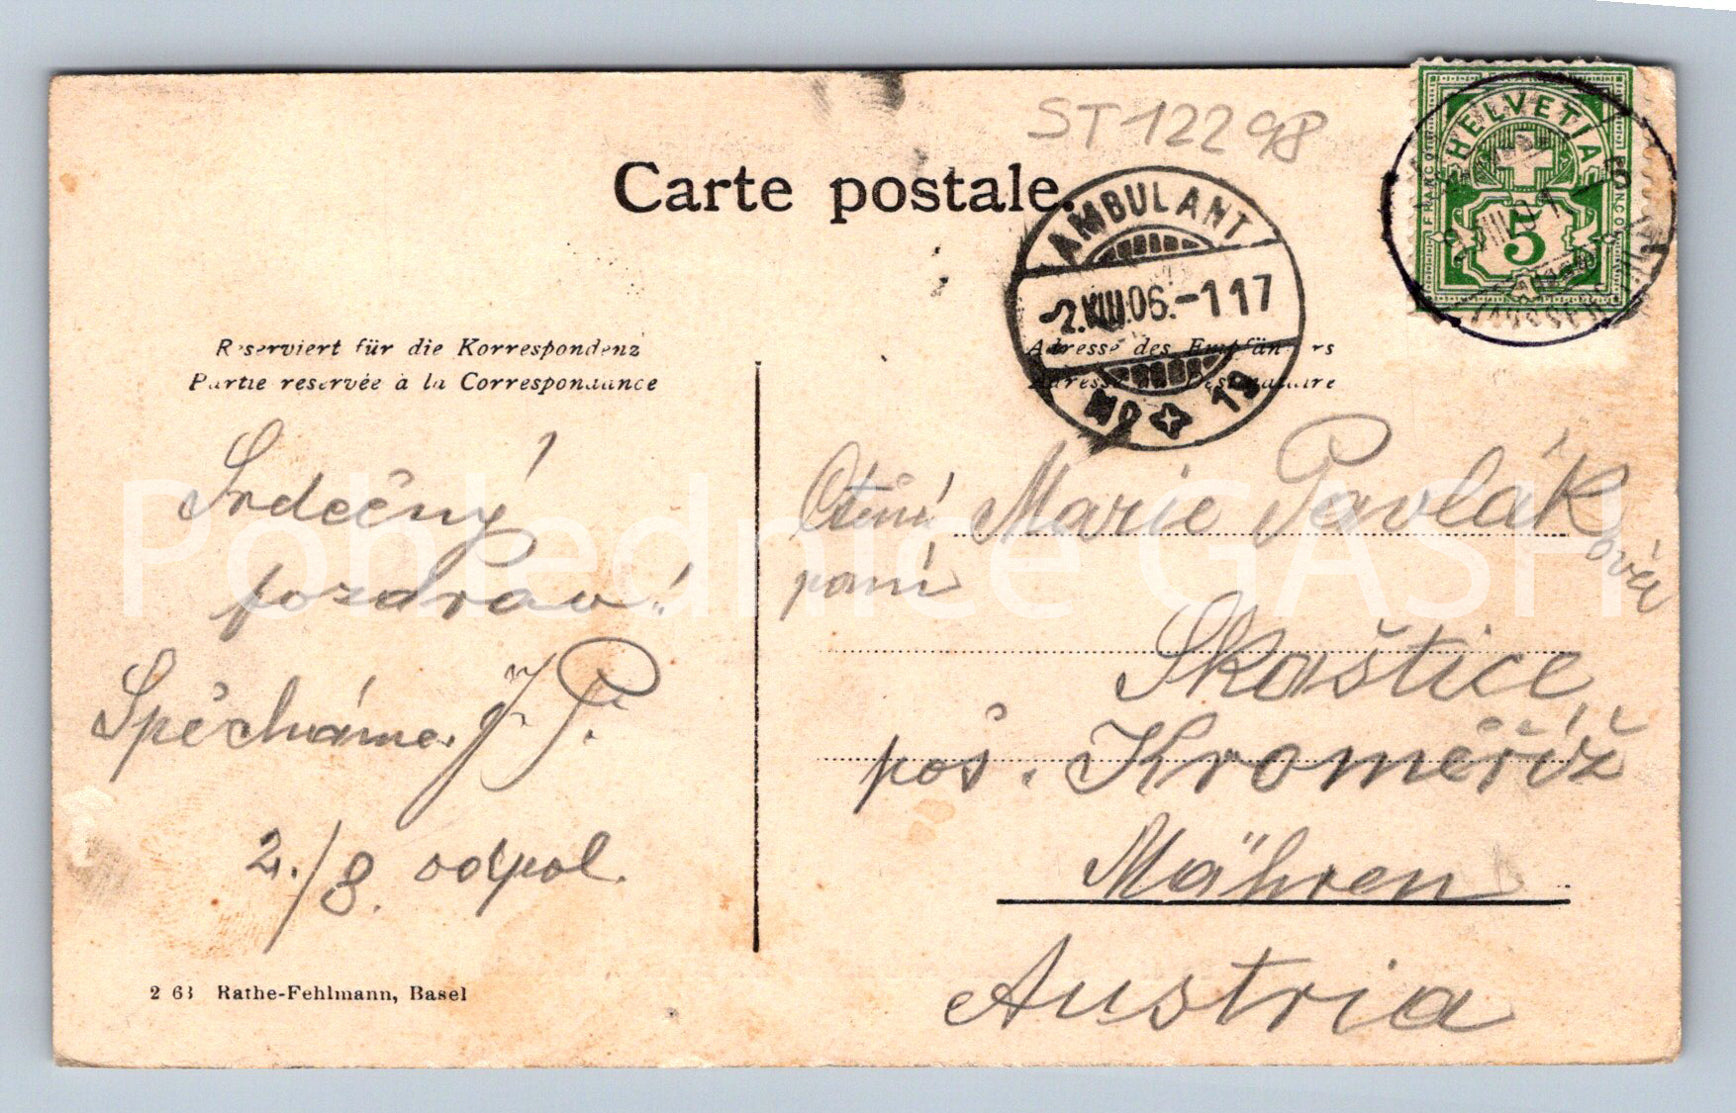 ST 12298
Carte postale.
HELVETIA
FRANCO
5
AMBULANT
-2.VIII.06.-117
No 19
Reserviert für die Korrespondenz
Partie reservée à la Correspondance
Adresse des Empfängers
Adresse Destinataire
Srdečný
pozdrav!
Spěcháme. J. P.
2./8. odpol.
Ctěná Marie Pavlák
ová
paní
Skaštice,
poš. Kroměříž
Mähren
Austria
2 63 Rathe-Fehlmann, Basel
Pohlednice GASH